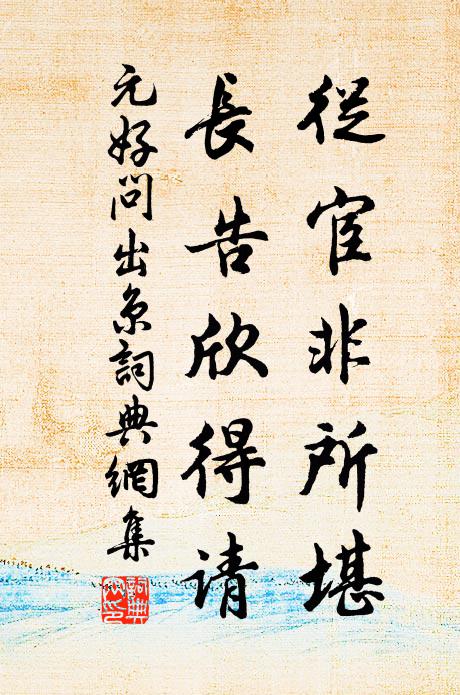 從宦非所堪
長告欣得请
元好問出京詞典網集